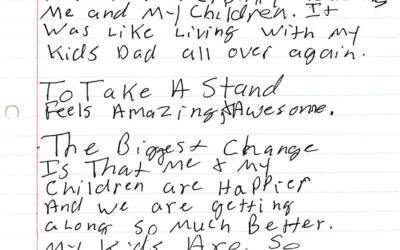 Me and My Children. It
Was Like Living With my
Kids Dad all over again.
To Take A Stand
Feels Amazing & Awesome.
The Biggest Change
Is That Me & my
Children are Happier
And We are getting
along so much Better.
My kids Are So